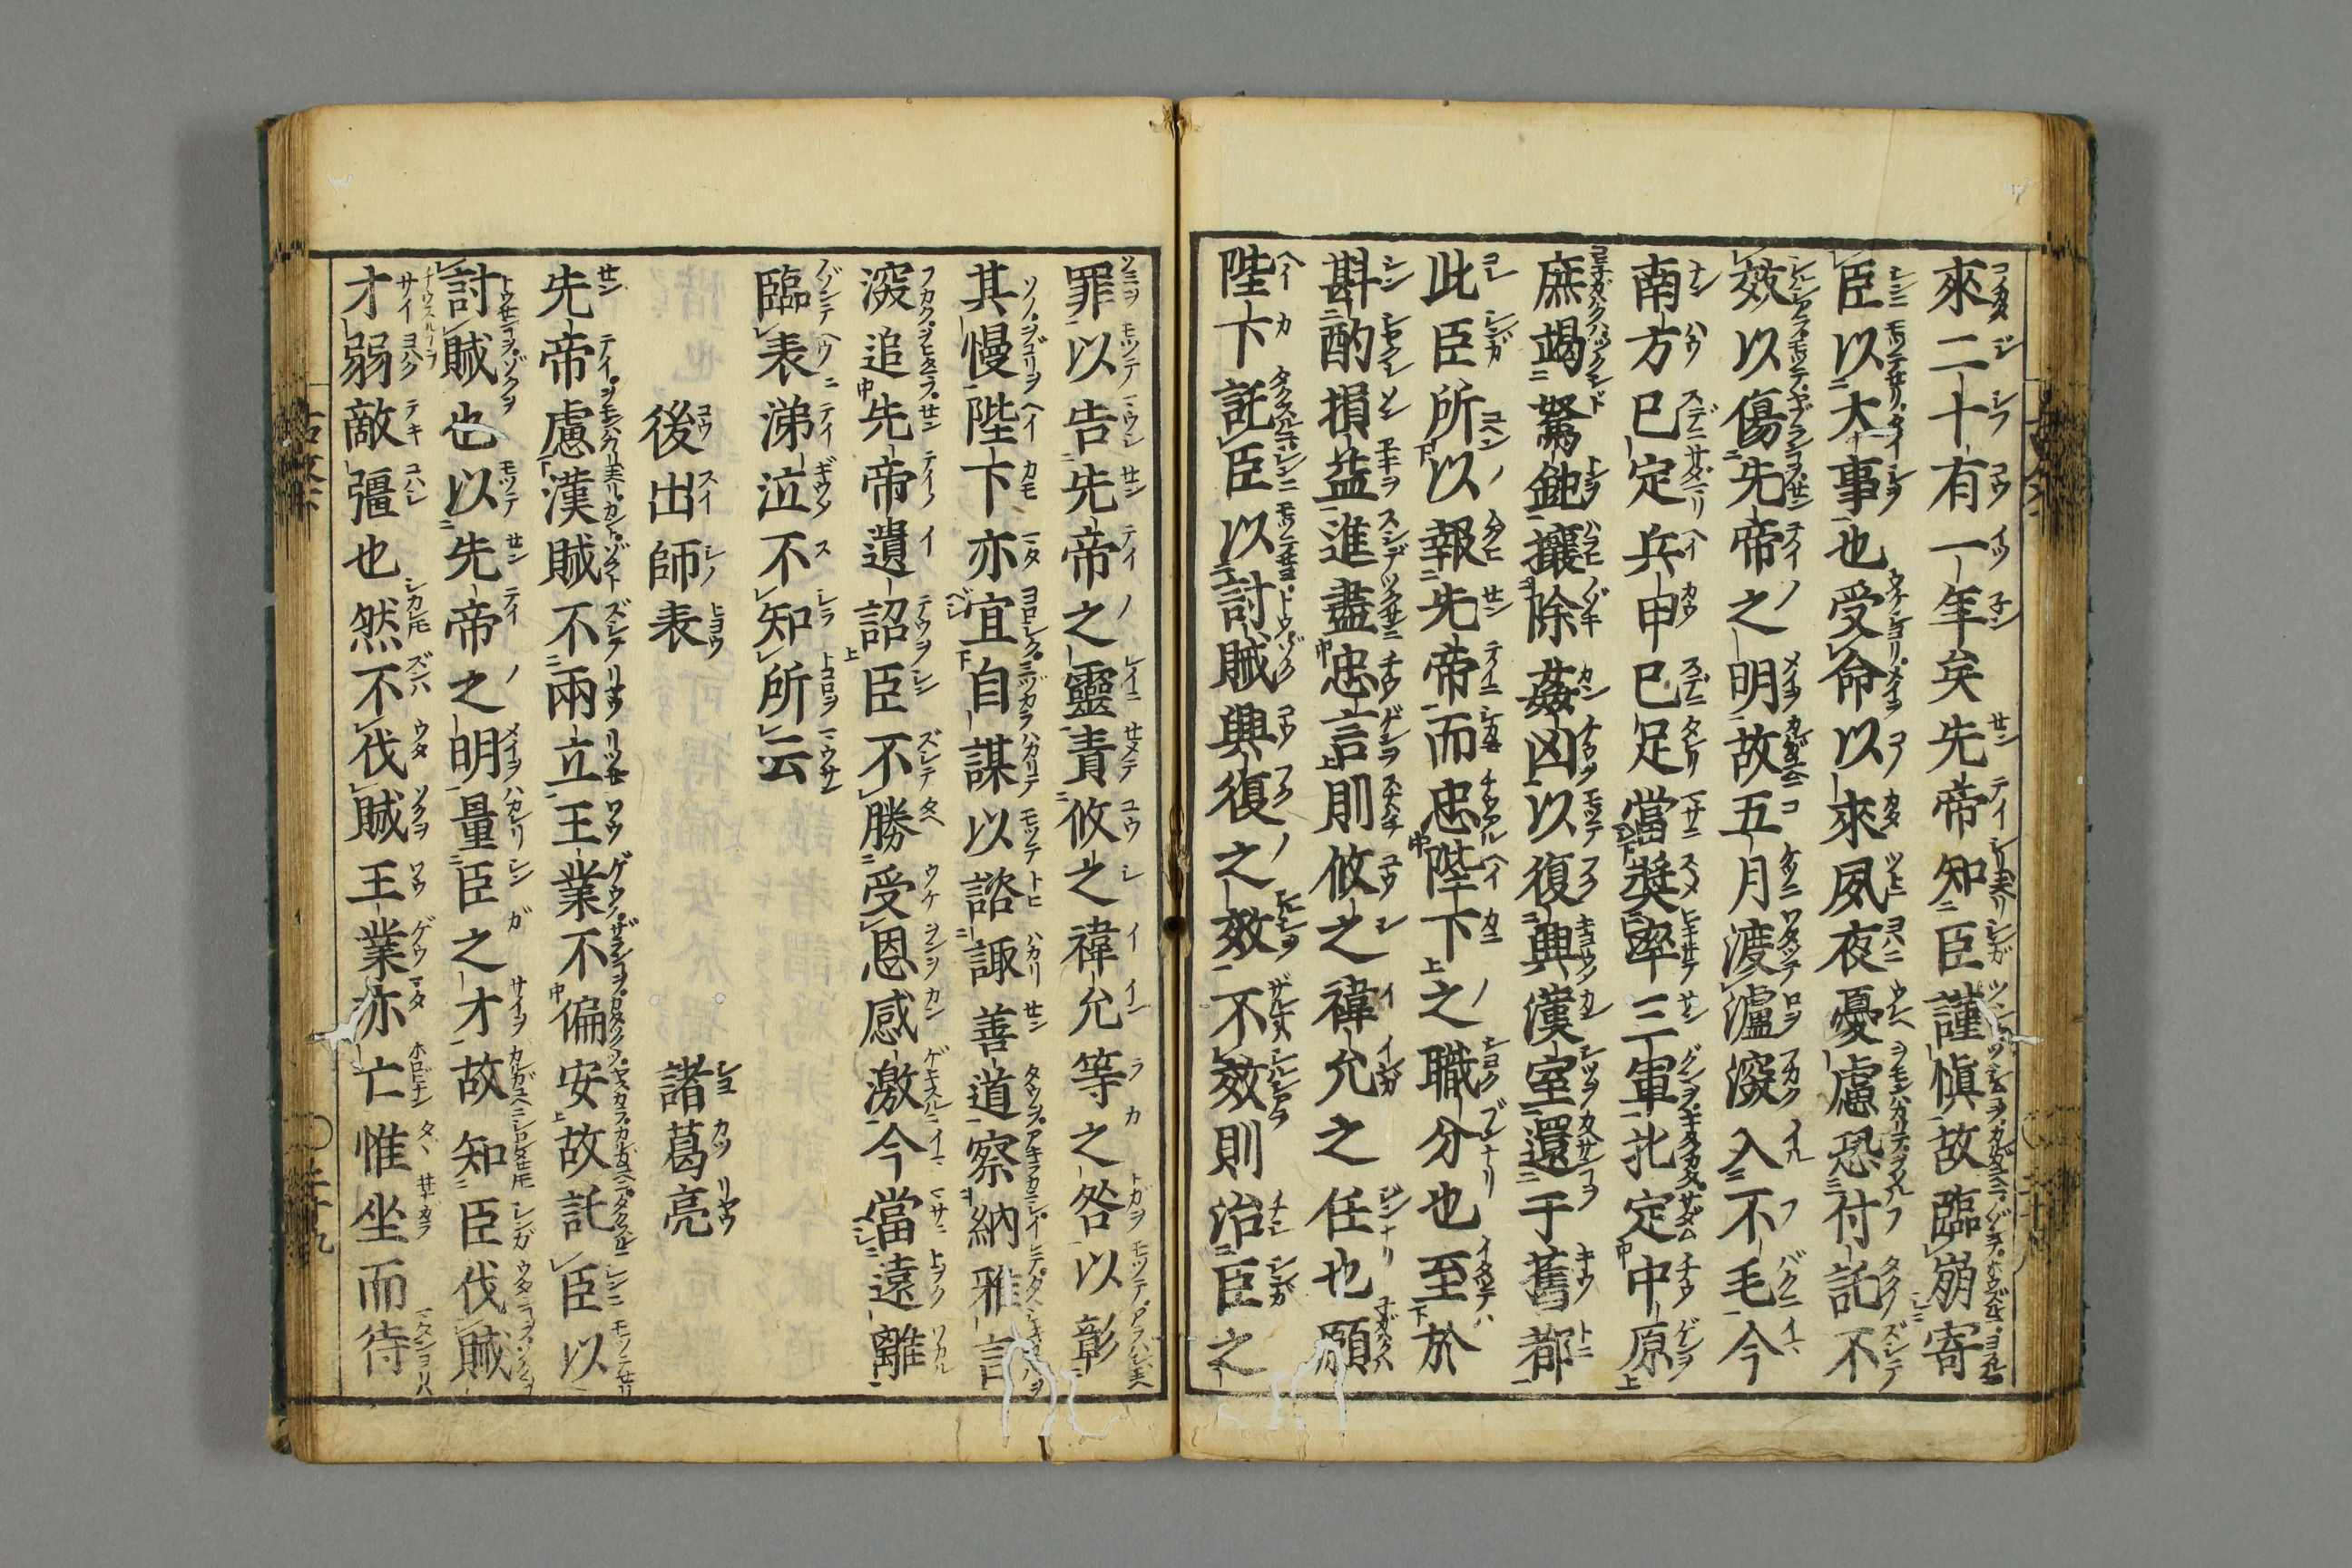 來二十有一年矣先帝知臣謹慎故臨崩寄
臣以大事也受命以來夙夜憂慮恐付託不
效以傷先帝之明故五月渡瀘深入不毛今
南方已定兵甲已足當奬率三軍北定中原
庶竭駑鈍攘除姦凶以復興漢室還于舊都
此臣所以報先帝而忠陛下之職分也至於
斟酌損益進盡忠言則攸之禕允之任也願
陛下託臣以討賊興復之效不效則治臣之
罪以告先帝之靈責攸之禕允等之咎以彰
其慢陛下亦宜自謀以諮諏善道察納雅言
深追先帝遺詔臣不勝受恩感激今當遠離
臨表涕泣不知所云
後出師表 諸葛亮
先帝慮漢賊不兩立王業不偏安故託臣以
討賊也以先帝之明量臣之才故知臣伐賊
才弱敵彊也然不伐賊王業亦亡惟坐而待